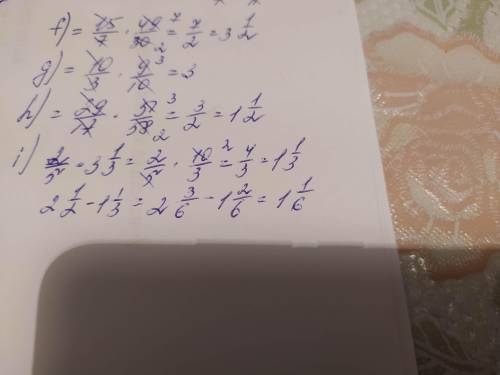 f) = 15/7 · 49/30 = 7/2 = 3 1/2
g) = 10/3 · 9/10 = 3
h) = 29/17 · 51/58 = 3/2 = 1 1/2
i) 2/5 = 3 1/3 = 2/5 · 10/3 = 4/3 = 1 1/3
2 1/2 - 1 1/3 = 2 3/6 - 1 2/6 = 1 1/6